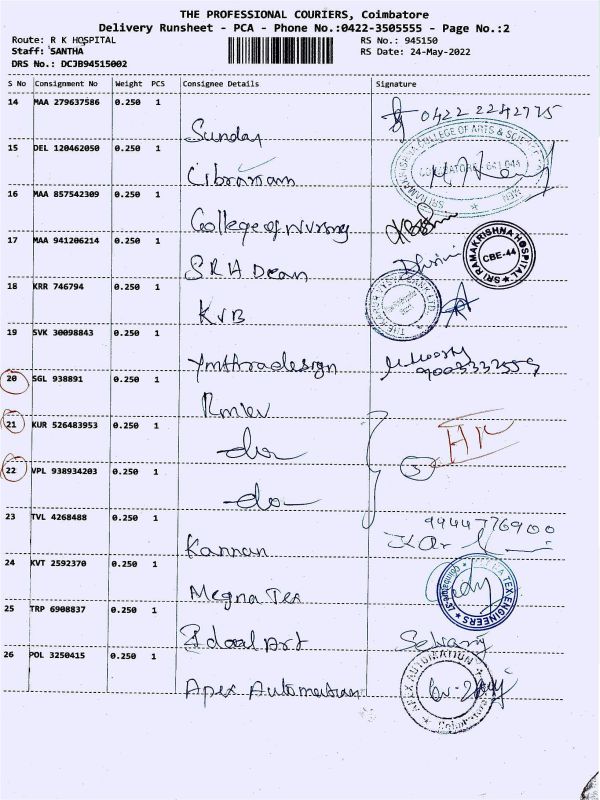 THE PROFESSIONAL COURIERS, Coimbatore
Delivery Runsheet - PCA - Phone No.:0422-3505555 - Page No.:2
Route: R K HOSPITAL RS No.: 945150
Staff: SANTHA RS Date: 24-May-2022
DRS No.: DCJB94515002
S No Consignment No Weight PCS Consignee Details Signature
14 MAA 279637586 0.250 1 Sunday 0422 2242775
15 DEL 120462050 0.250 1 Librariam
SRI RAMAKRISHNA COLLEGE OF ARTS & SCIENCE
COIMBATORE - 641 044
16 MAA 857542309 0.250 1 College of Nursing
17 MAA 941206214 0.250 1 SRH Dean
SRI RAMAKRISHNA HOSPITAL
CBE-44
18 KRR 746794 0.250 1 KVB
19 SVK 30098843 0.250 1 Ymthradesign
20 SGL 938891 0.250 1
21 KUR 526483953 0.250 1 do
22 VPL 938934203 0.250 1 do
3
23 TVL 4268488 0.250 1 Kannan 9944776900
24 KVT 2592370 0.250 1 Megna Tex
TEX ENGINEERS
25 TRP 6908837 0.250 1 Idaal Art Selvaraj
26 POL 3250415 0.250 1 Apex Automation
APEX AUTOMATION
Coimbatore